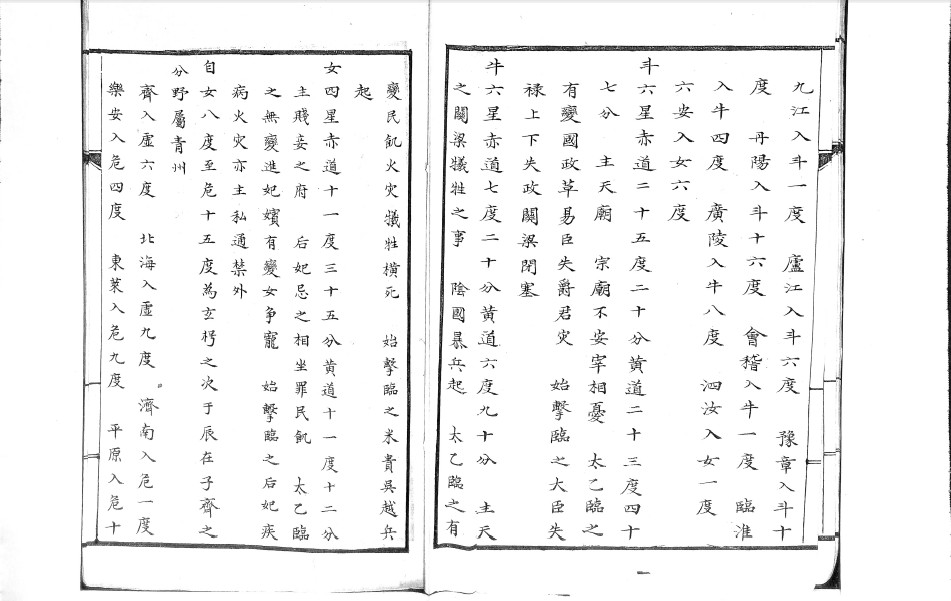 九江入斗一度　廬江入斗六度　豫章入斗十
度　丹陽入斗十六度　會稽入牛一度　臨淮
入牛四度　廣陵入牛八度　泗汝入女一度
六安入女六度
斗六星赤道二十五度二十分黄道二十三度四十
七分　主天廟　宗廟不安宰相憂　太乙臨之
有變國政草易臣失爵君灾　始擊臨之大臣失
禄上下失政關梁閉塞
牛六星赤道七度二十分黄道六度九十分　主天
之關梁犠牲之事　陰國暴兵起　太乙臨之有
變民飢火灾犠牲横死　始擊臨之米貴吳越兵
起
女四星赤道十一度三十五分黄道十一度十二分
主賤妾之府　后妃忌之相坐罪民飢　太乙臨
之無變進妃嬪有變女争寵　始擊臨之后妃疾
病火灾亦主私通禁外
自女八度至危十五度為玄枵之次于辰在子齊之
分野屬青州
齊入虚六度　北海入虚九度　濟南入危一度
樂安入危四度　東萊入危九度　平原入危十